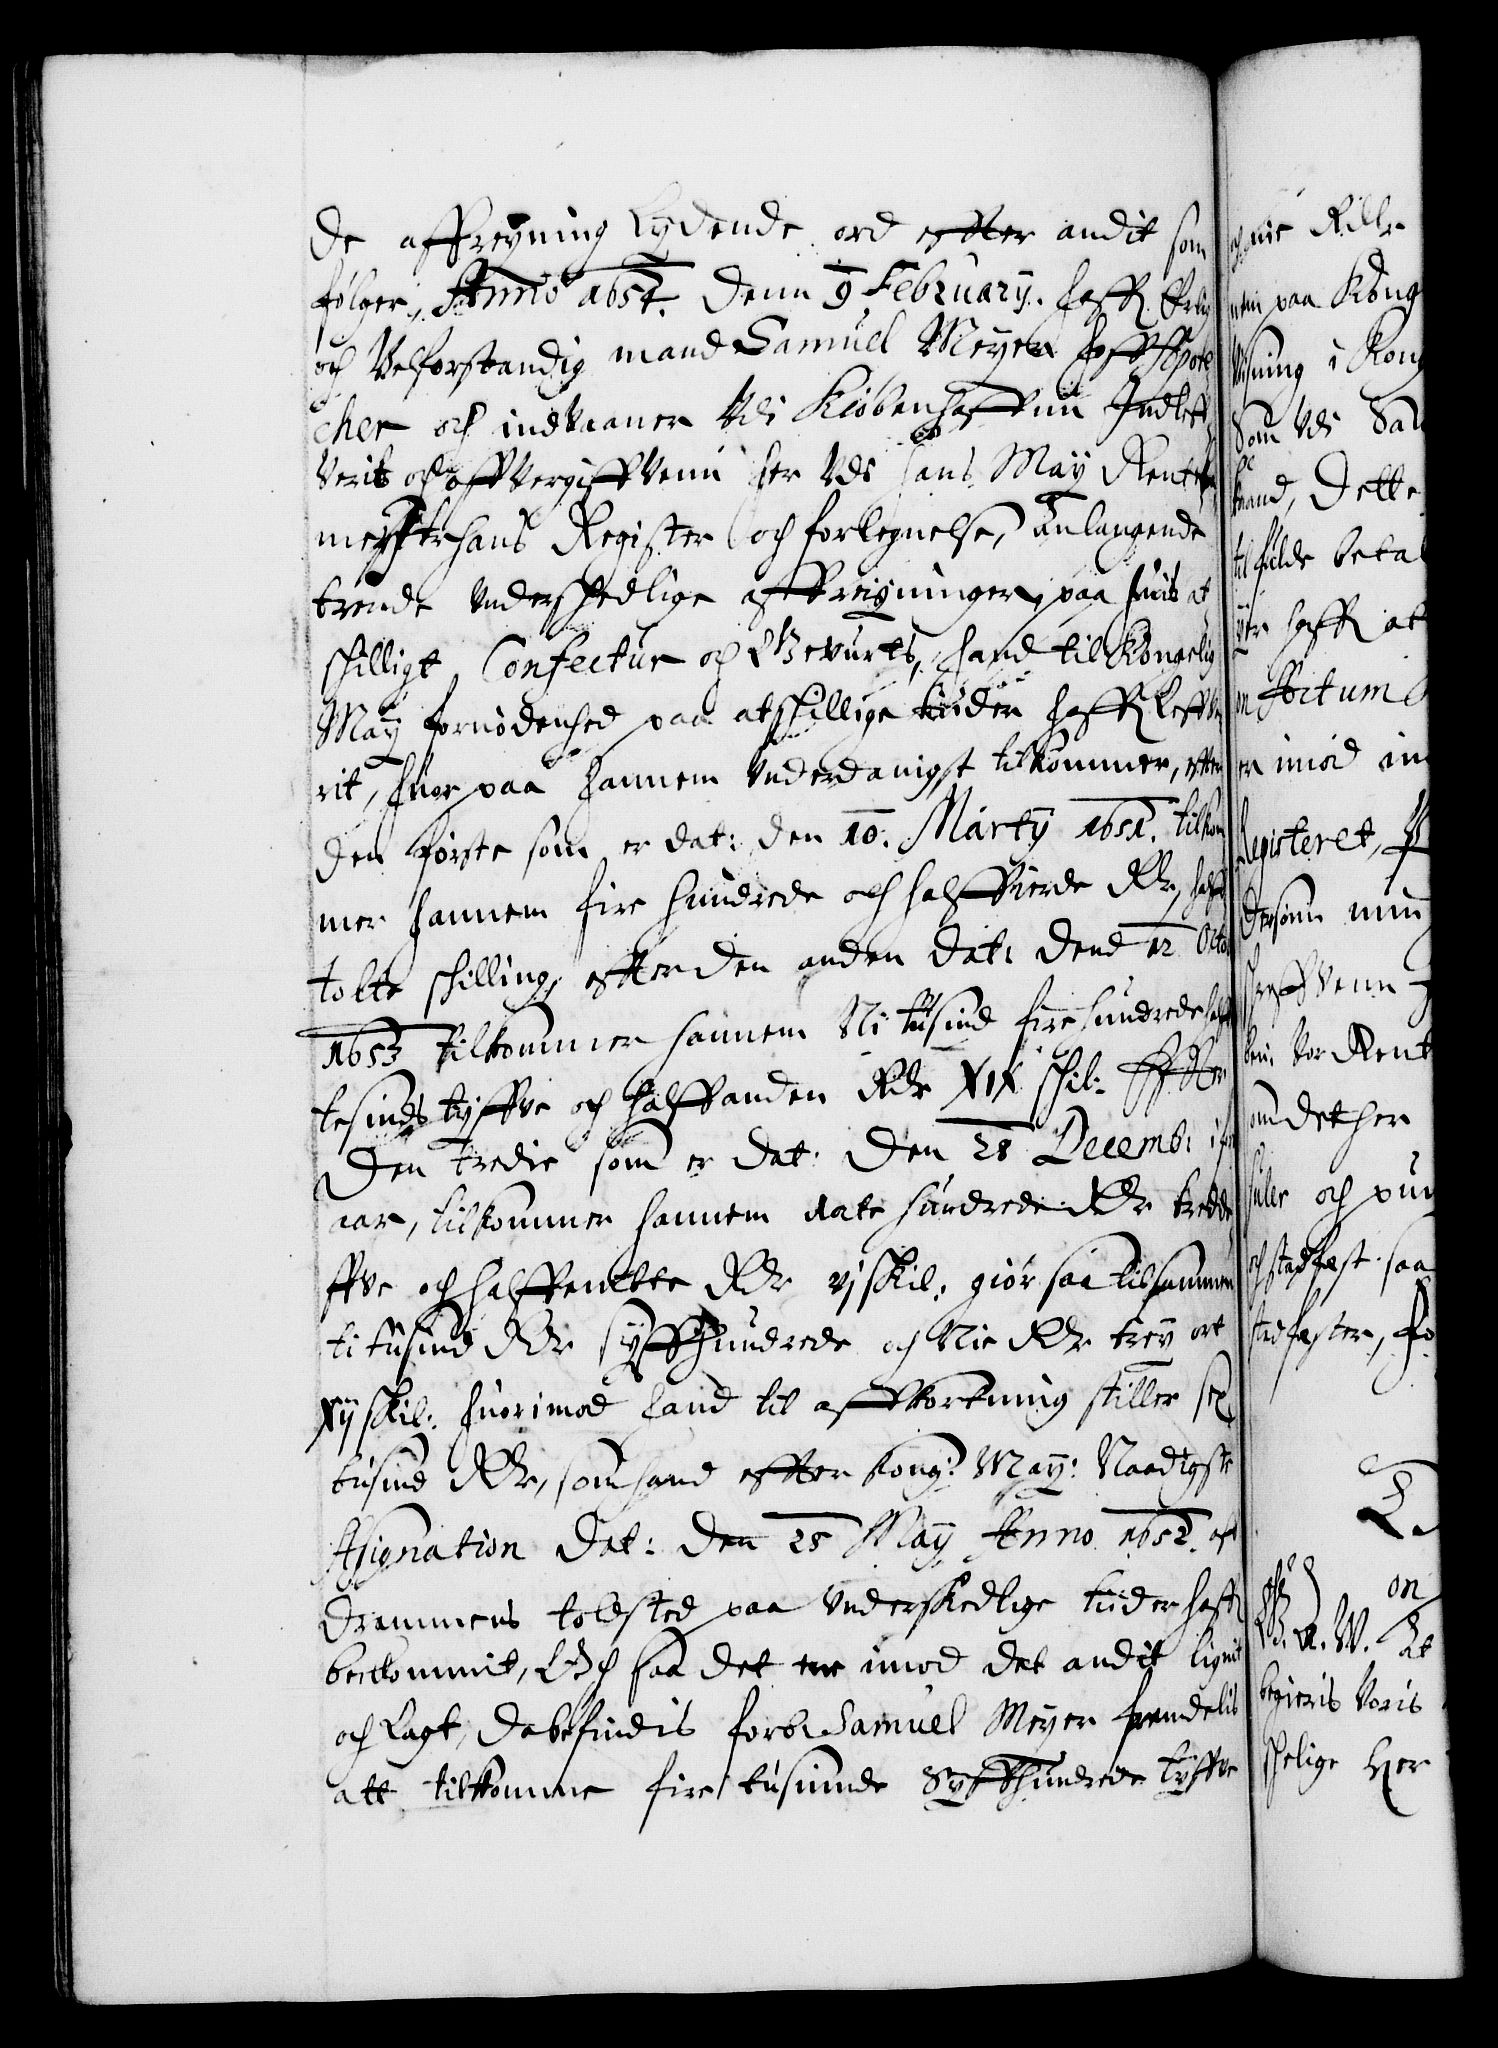 de affreigning lydende ord efter andit som
følger, Anno 1654. denn 9 February. haffr Erlig
och Velforstandig mand Samuel Meyer hoff Apote
cher och indvaaner Vdi Kiøbenhaffvnn Indleff
verit och offvergiffvenn her Vdi hans May Rente
meystrhans Register och forlegnelse, Anlangende
trende underschedlige affreigninger, paa huis at
schilligt Confectur och Gewurts, hand til Kongelig
May fornødenhed paa atschillige tiider haffr leffve
rit, huor paa hannem Vnderdanigst tilkommer, effter
den første som er dat: den 10. Marty 1651. tilkom
mer hannem fire hundrede och halffierde Rdr, halff
tolte schilling, effter den anden dat: dend 12 Octo
1653 tilkommer hannem Ni tusind fire hundrede halff
tesinds tyffve och halffanden Rdr XIX schil: Effter
den tredie som er dat: den 28 Decemb:
aar, tilkommer hannem aate hundrede Rdr tredi
ffve och halffemtte Rdr vj skil: giør saa tilsammen
ti tusind Rdr syffhundrede och Nie Rdr trey ort
xij skil: huorimod hand til affkortning stiller sex
tusind Rdr, som hand effter kong: May: Naadigste
Assignation dat: den 25 May Anno 1652. aff
Drammens toldsted paa Underskedlige tiider haffr
beckommit, Och saa det ene imod det andit lignit
och lagt, da befindis forbe Samuel Meyer fremdelis
att tilkomme fire tusinde Syffhundrede tyffve
och nie Rdlr
paa Kong
visning i Kong
Som Vdi Sa
haand, dette
til fulde betal
haffr at
Actum
er imod in
Registeret,
dersom mun
vor Rent
om det her
och pun
och stadfest saa
stadfester, fo
on
N. W. At
begieris Voris
schelige her